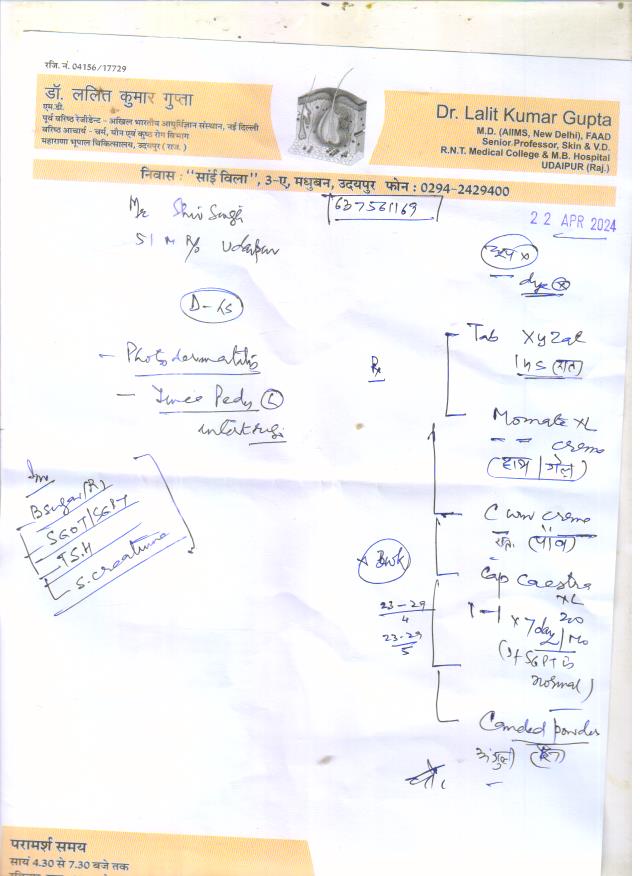 रजि. नं. 04156/17729
डॉ. ललित कुमार गुप्ता
एम.डी.
पूर्व वरिष्ठ रेजीडेन्ट - अखिल भारतीय आयुर्विज्ञान संस्थान, नई दिल्ली
वरिष्ठ आचार्य - चर्म, यौन एवं कुष्ठ रोग विभाग
महाराणा भूपाल चिकित्सालय, उदयपुर (राज.)
Dr. Lalit Kumar Gupta
M.D. (AIIMS, New Delhi), FAAD
Senior Professor, Skin & V.D.
R.N.T. Medical College & M.B. Hospital
UDAIPUR (Raj.)
निवास : "सांई विला", 3-ए, मधुबन, उदयपुर फोन : 0294-2429400
Mr Shiv Singh
51 M R/o Udaipur
637561169
22 APR 2024
dye
- Photodermatitis
- Tinea Pedis
B sugar (R)
SGOT/SGPT
TSH
S. creatinine
Rx
Tab Xyzal
(रात)
Momate XL
creme
creme
(पाँव)
Cap
XL
200
1-1 x 7 day/Mo
(If SGPT is
normal)
23-29
4
23-29
5
Candid powder
परामर्श समय
सायं 4.30 से 7.30 बजे तक